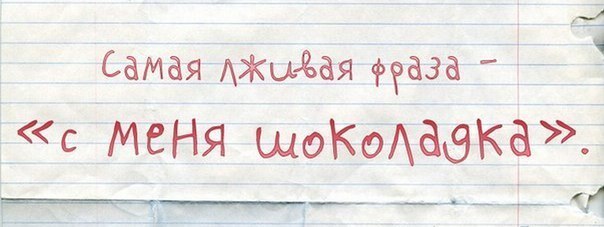 Самая лживая фраза -
«с меня шоколадка».